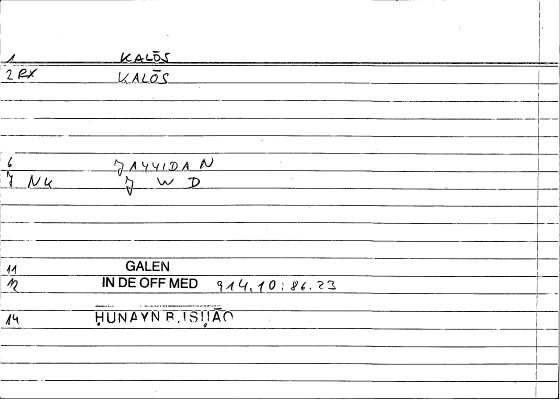 1 KALŌS
2 RX KALŌS
6 JAYYIDAN
7 NK J W D
11 GALEN
12 IN DE OFF MED 914,10 : 86.23
14 ḤUNAYN B. ISḤĀQ